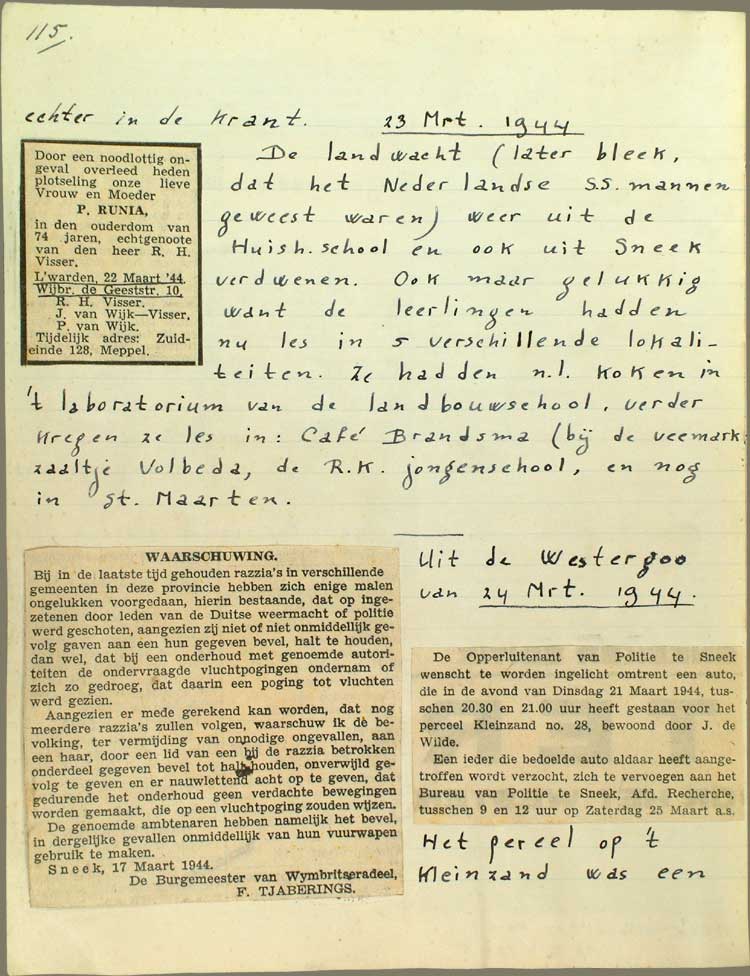 115.
echter in de Krant. 23 Mrt. 1944
Door een noodlottig on-
geval overleed heden
plotseling onze lieve
Vrouw en Moeder
P. RUNIA,
in den ouderdom van
74 jaren, echtgenoote
van den heer R. H.
Visser.
L'warden, 22 Maart '44.
Wijbr. de Geeststr. 10.
R. H. Visser.
J. van Wijk—Visser.
P. van Wijk.
Tijdelijk adres: Zuid-
einde 128, Meppel.
De landwacht (later bleek,
dat het Nederlandse S.S. mannen
geweest waren) weer uit de
Huish. school en ook uit Sneek
verdwenen. Ook maar gelukkig
want de leerlingen hadden
nu les in 5 verschillende lokali-
teiten. Ze hadden n.l. koken in
't laboratorium van de landbouwschool, verder
kregen ze les in: Café Brandsma (bij de veemark
zaaltje Volbeda, de R.K. jongenschool, en nog
in St. Maarten.
WAARSCHUWING.
Bij in de laatste tijd gehouden razzia's in verschillende
gemeenten in deze provincie hebben zich enige malen
ongelukken voorgedaan, hierin bestaande, dat op inge-
zetenen door leden van de Duitse weermacht of politie
werd geschoten, aangezien zij niet of niet onmiddellijk ge-
volg gaven aan een hun gegeven bevel, halt te houden,
dan wel, dat bij een onderhoud met genoemde autori-
teiten de ondervraagde vluchtpogingen ondernam of
zich zo gedroeg, dat daarin een poging tot vluchten
werd gezien.
Aangezien er mede gerekend kan worden, dat nog
meerdere razzia's zullen volgen, waarschuw ik de be-
volking, ter vermijding van onnodige ongevallen, aan
een haar, door een lid van een bij de razzia betrokken
onderdeel gegeven bevel tot halt houden, onverwijld ge-
volg te geven en er nauwlettend acht op te geven, dat
gedurende het onderhoud geen verdachte bewegingen
worden gemaakt, die op een vluchtpoging zouden wijzen.
De genoemde ambtenaren hebben namelijk het bevel,
in dergelijke gevallen onmiddellijk van hun vuurwapen
gebruik te maken.
Sneek, 17 Maart 1944.
De Burgemeester van Wymbritseradeel,
F. TJABERINGS.
Uit de Westergoo
van 24 Mrt. 1944.
De Opperluitenant van Politie te Sneek
wenscht te worden ingelicht omtrent een auto,
die in de avond van Dinsdag 21 Maart 1944, tus-
schen 20.30 en 21.00 uur heeft gestaan voor het
perceel Kleinzand no. 28, bewoond door J. de
Wilde.
Een ieder die bedoelde auto aldaar heeft aange-
troffen wordt verzocht, zich te vervoegen aan het
Bureau van Politie te Sneek, Afd. Recherche,
tusschen 9 en 12 uur op Zaterdag 25 Maart a.s.
Het perceel op 't
Kleinzand was een